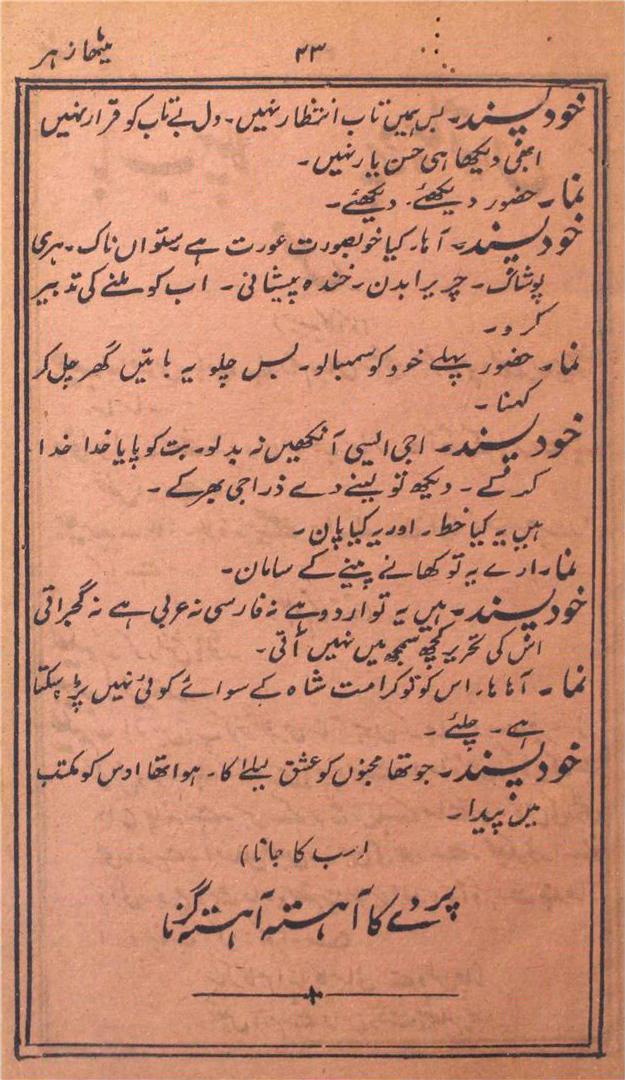 میٹھا زہر
۴۳
خود پسند۔ بس ہمیں تاب انتظار نہیں۔ دل بے تاب کو قرار نہیں
ابھی دیکھا ہی حسن یار نہیں۔
نما۔ حضور دیکھئے۔ دیکھئے۔
خود پسند۔ آہا۔ کیا خوبصورت عورت ہے ستواں ناک۔ ہری
پوشاک۔ چریرا بدن۔ خندہ پیشانی۔ اب کو ملنے کی تدبیر
کرو۔
نما۔ حضور پہلے خود کو سمہبالو۔ بس چلو یہ باتیں گھر چل کر
کہنا۔
خود پسند۔ اجی ایسی آنکھیں نہ بدلو۔ بت کو پایا خدا خدا
کر کے۔ دیکھ تو لینے دے ذرا جی بھر کے۔
ہیں یہ کیا خط۔ اور یہ کیا پان۔
نما۔ ارے یہ تو کھانے پینے کے سامان۔
خود پسند۔ ہیں یہ تو اردو ہے نہ فارسی نہ عربی ہے نہ گجراتی
اس کی تحریر کچھ سمجھ میں نہیں آتی۔
نما۔ آہا ہا۔ اس کو تو کرامت شاہ کے سوائے کوئی نہیں پڑھ سکتا
ہے۔ چلئے۔
خود پسند۔ جو تھا مجنوں کو عشق لیلےٰ کا۔ ہوا تھا اوس کو مکتب
میں پیدا۔
(سب کا جانا)
پردے کا آہستہ آہستہ گرنا